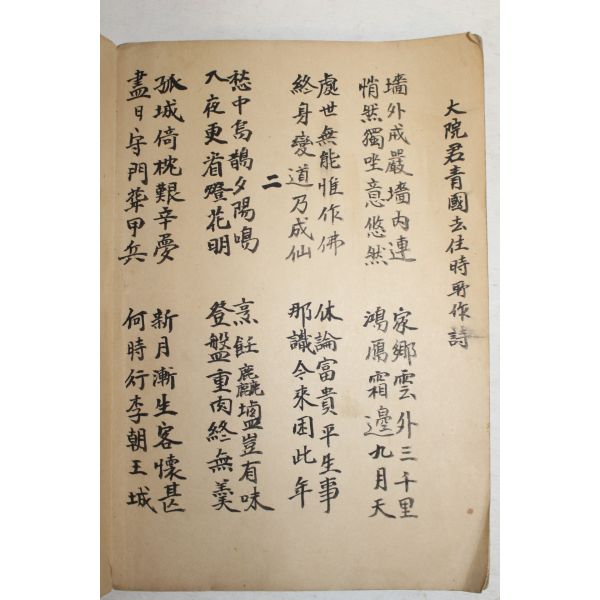 大院君青國去住時所作詩
墻外戍嚴墻內連
悄然獨坐意悠然
家鄉雲外三千里
鴻鴈霜邊九月天
處世無能惟作佛
終身變道乃成仙
休論富貴平生事
那識今來困此年
二
愁中烏鵲夕陽鳴
入夜更省燈花明
烹飪麤鹽豈有味
登盤重肉終無羹
孤城倚枕艱辛夢
盡日守門葬甲兵
新月漸生客懷甚
何時行李朝王城